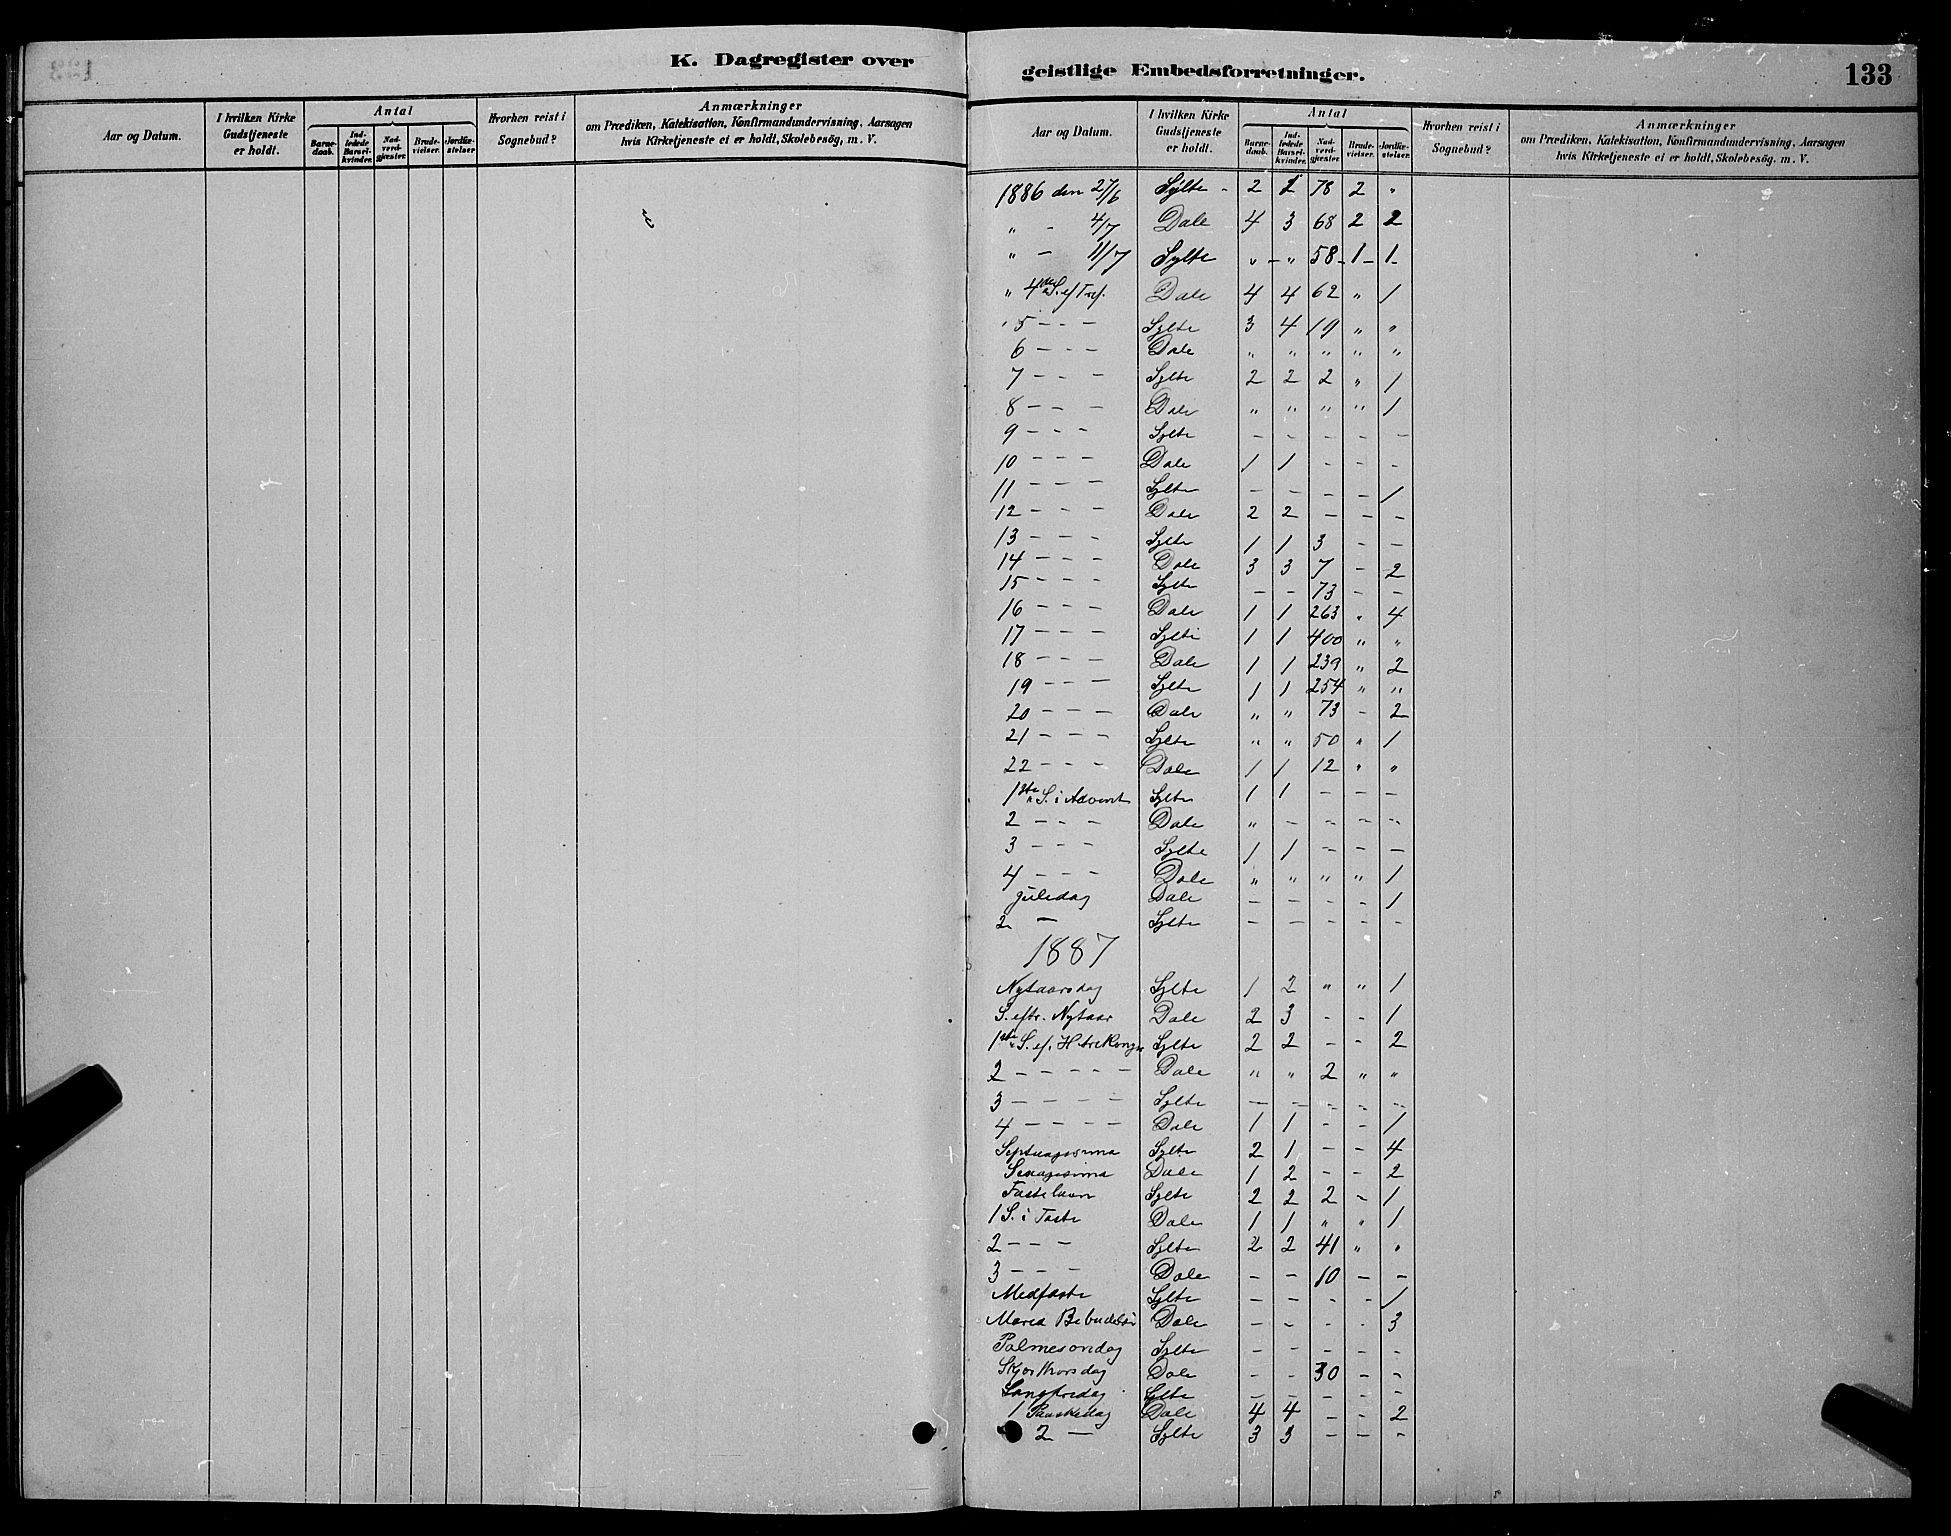 K. Dagregister over
Aar og Datum. I hvilken Kirke Gudstjeneste er holdt. Antal Barnedaab. Indledede Barselkvinder. Nadverdgjæster. Brudevielser. Jordfæstelser Hvorhen reist i Sognebud? Anmærkninger
om Prædiken, Katekisation, Konfirmandundervisning, Aarsagen
hvis Kirketjeneste ei er holdt, Skolebesög, m. V.
geistlige Embedsforretninger. 133
Aar og Datum. I hvilken Kirke Gudstjeneste er holdt. Antal Barnedaab. Indledede Barselkvinder. Nadverdgjæster. Brudevielser. Jordfæstelser. Hvorhen reist i Sognebud? Anmærkninger
om Prædiken, Katekisation, Konfirmandundervisning, Aarsagen
hvis Kirketjeneste ei er holdt, Skolebesög. m. V.
1886 den 27/6 Sylte - 2 2 78 2 "
" - 4/7 Dale 4 3 68 2 2
" - 11/7 Sylte " - " 58 - 1 - 1 -
" 4de S. ef Tref. Dale 4 4 62 " 1
" 5 - - - Sylte 3 4 19 " "
6 - - - Dale " " " " "
7 - - - Sylte 2 2 2 " 1
8 - - - Dale " " " " 1
9 - - - Sylte - - - - -
10 - - - Dale 1 1 - - -
11 - - - Sylte - - - - 1
12 - - - Dale 2 2 - - -
13 - - - Sylte 1 1 3 - -
14 - - - Dale 3 3 7 - 2
15 - - - Sylte - - 73 - -
16 - - - Dale 1 1 263 " 4
17 - - - Sylte 1 1 400 " "
18 - - - Dale 1 1 239 " 2
19 - - - Sylte 1 1 254 " "
20 - - - Dale " " 73 - 2
21 - - - Sylte " " 50 " 1
22 - - - Dale 1 1 12 " "
1ste S. i Advent Sylte 1 1 - - -
2 - - - Dale " - - - -
3 - - - Sylte 1 1 - - -
4 - - - Dale " " " " 1
Juledag Dale - - - - 1
2 - Sylte - - - - -
1887
Nytaarsdag Sylte 1 2 " " 1
S. eftr. Nytaar Dale 2 3 - - 1
1ste S. ef. H. trekong Sylte 2 2 - - 2
2 - - - - - Dale " " 2 " "
3 - - - - Sylte - - - - -
4 - - - - Dale 1 1 - - 1
Septuagesima Sylte 2 1 - - 4
Sexagesima Dale 1 2 - - 2
Fastelavn Sylte 2 2 2 - 1
1 S. i Faste Dale 1 1 " " 1
2 - - - Sylte 2 2 41 " "
3 - - - Dale - - 10 - -
Midfaste Sylte - - - - 1
Maria Bebudelse Dale - - - - 3
Palmesøndag Sylte - - - - -
Skjærthorsdag Dale - - 30 - -
Langfredag Sylte - - - - -
1 Paaskedag Dale 4 4 - - 2
2 - Sylte 3 3 - - -